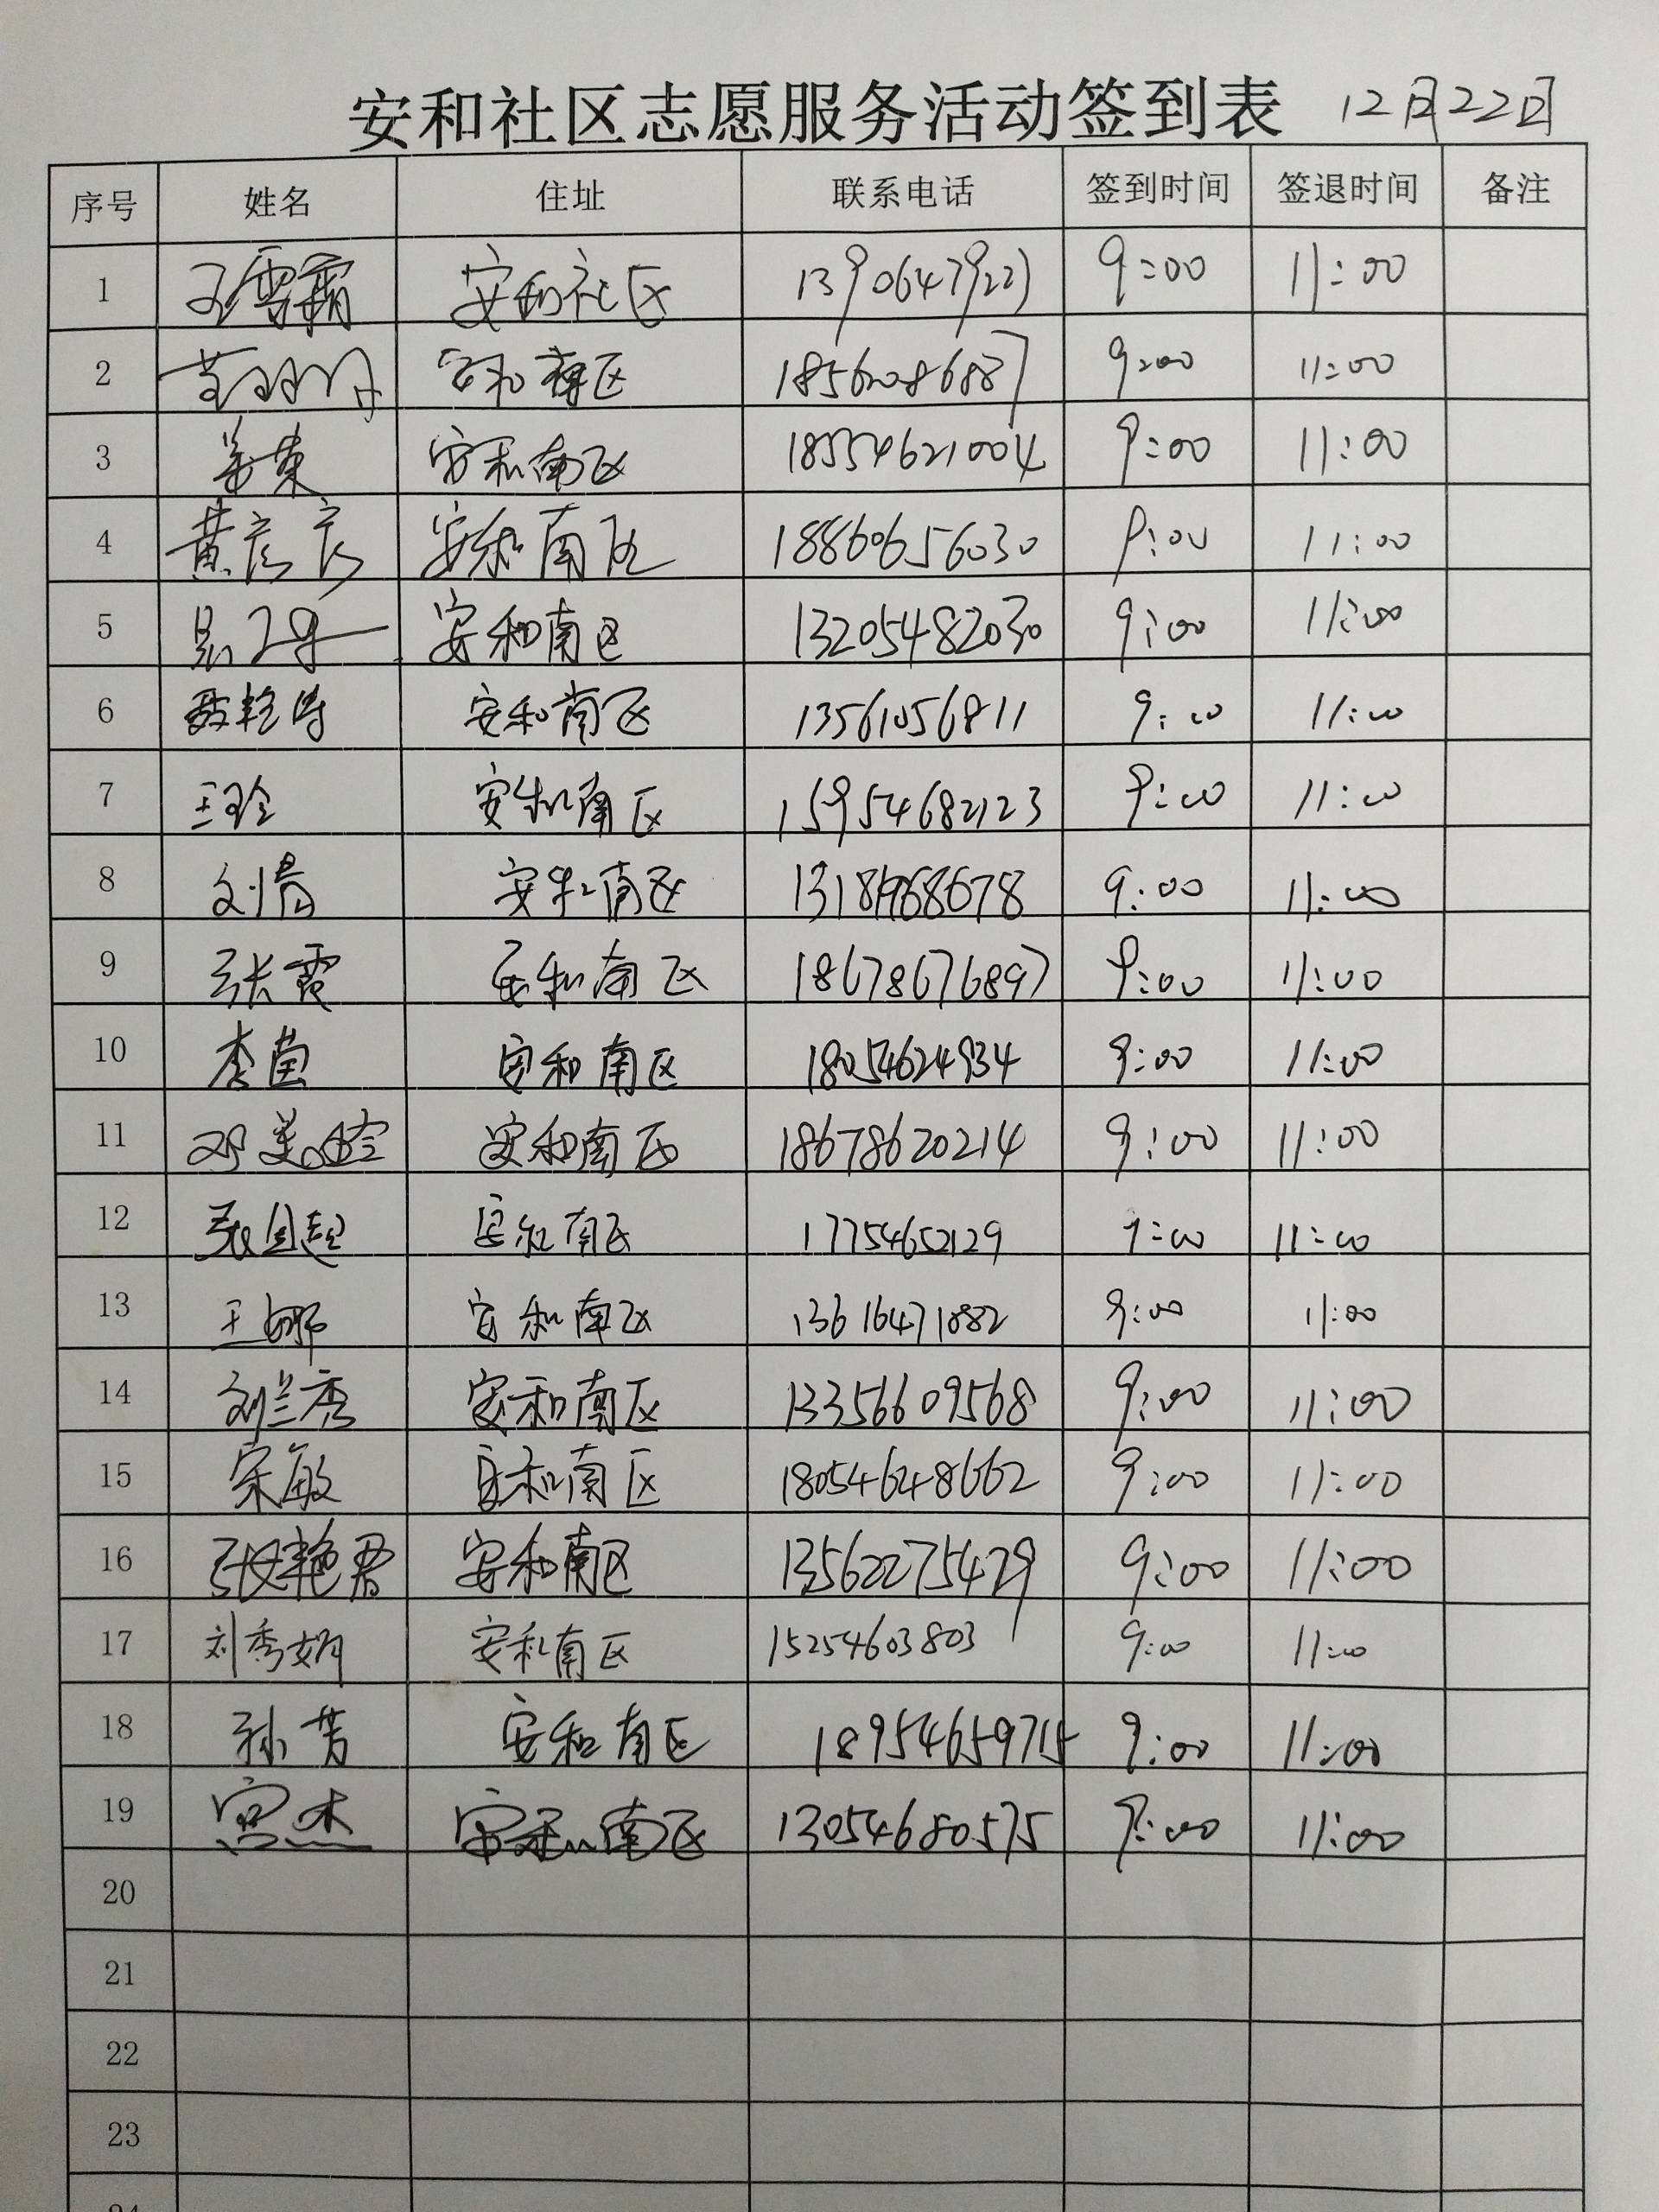 安和社区志愿服务活动签到表 12月22日
序号 姓名 住址 联系电话 签到时间 签退时间 备注
1 王雪霜 安和社区 13906479221 9:00 11:00
2 安和南区 18562086887 9:00 11:00
3 姜东 安和南区 18554621004 9:00 11:00
4 黄彦彦 安和南区 18860656030 9:00 11:00
5 安和南区 13205482030 9:00 11:00
6 聂艳涛 安和南区 13561056811 9:00 11:00
7 王玲 安和南区 15954682123 9:00 11:00
8 刘倩 安和南区 9:00 11:00
9 张霞 安和南区 18678676897 9:00 11:00
10 李苗 安和南区 18054624934 9:00 11:00
11 邓美玲 安和南区 18678620214 9:00 11:00
12 张国超 安和南区 17754652129 9:00 11:00
13 王娜 安和南区 13616471882 9:00 11:00
14 刘兰秀 安和南区 13356609568 9:00 11:00
15 宋敏 安和南区 18054648662 9:00 11:00
16 张艳君 安和南区 13562275429 9:00 11:00
17 刘秀娟 安和南区 15254603803 9:00 11:00
18 孙芳 安和南区 18954659715 9:00 11:00
19 宫杰 安和南区 13054680575 9:00 11:00
20
21
22
23